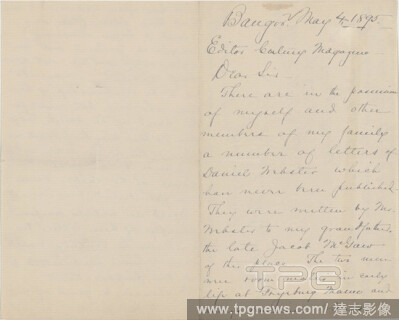 Bangor, May 4, 1895.
Editor Century Magazine
Dear Sir -
There are in the possession
of myself and other
members of my family
a number of letters of
Daniel Webster which
have never been published.
They were written by Mr.
Webster to my grandfather
the late Jacob McGaw
of this place. The two men
were room mates in early
life at Fryeburg Maine and
TPG
www.tpgimages.com / 達志影像